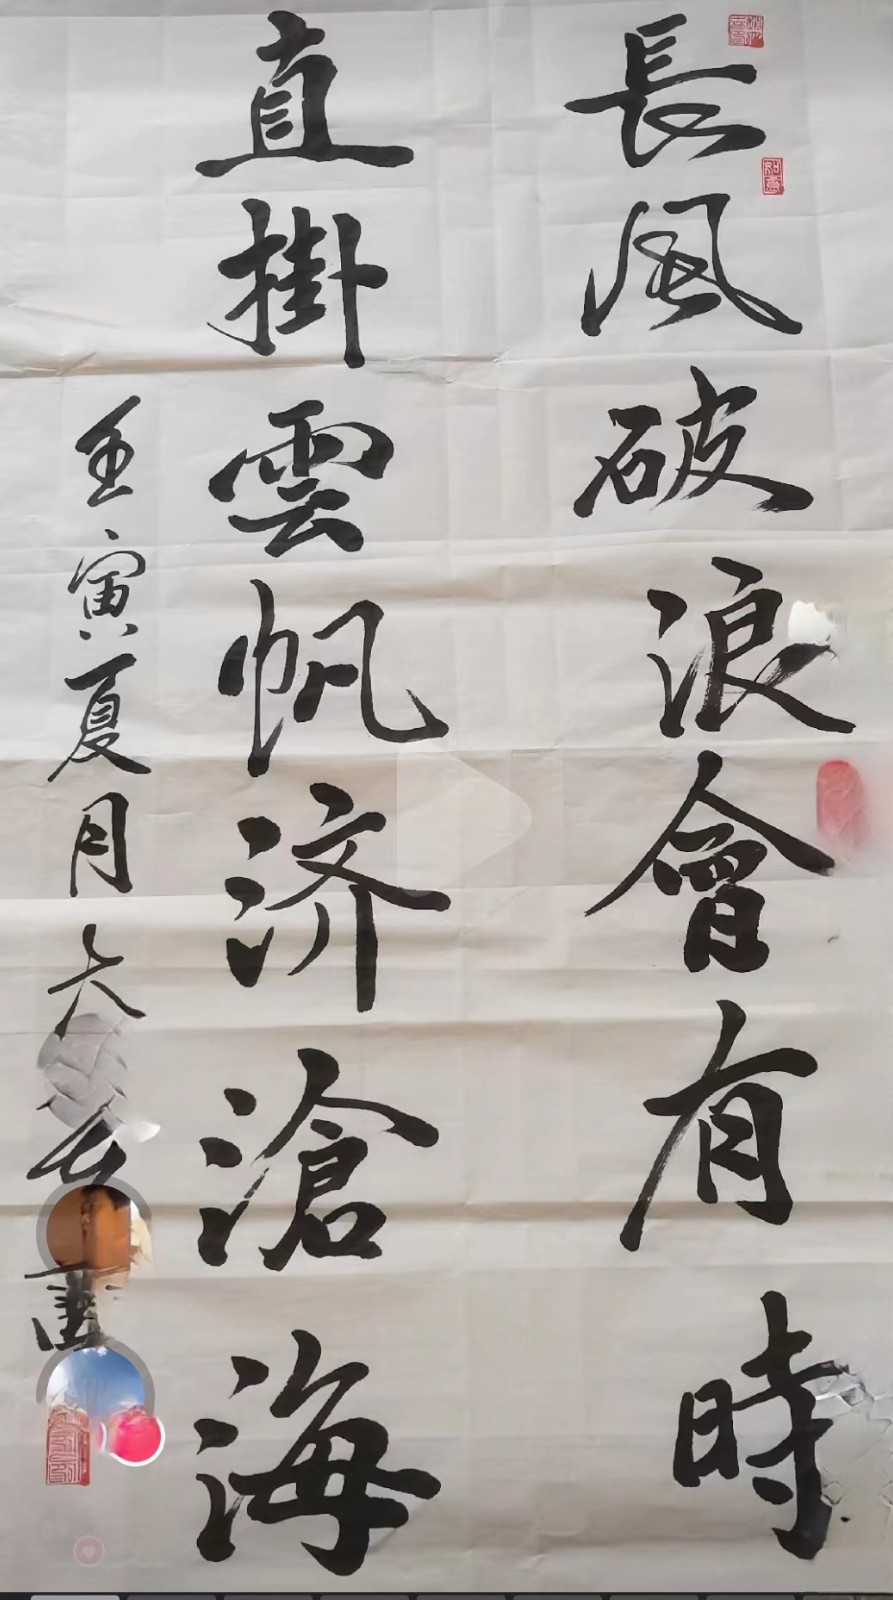 長風破浪會有時
直掛雲帆济滄海
壬寅夏月六
如意